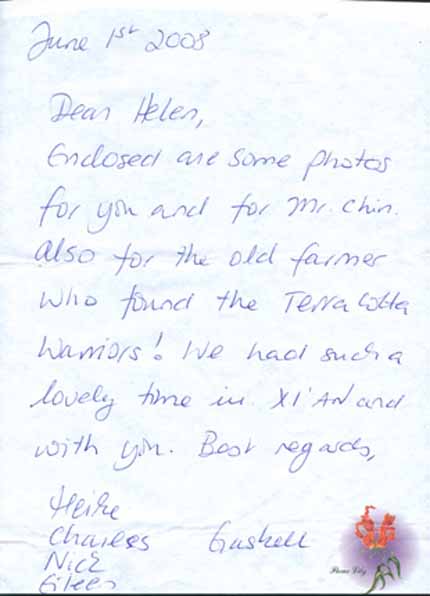 June 1st 2008
Dear Helen,
Enclosed are some photos
for you and for Mr. Chin.
also for the old farmer
who found the Terra Cotta
Warriors! We had such a
lovely time in XI'AN and
with you. Best regards,
Heike
Charles Gaskell
Nick
Eileen
Flame Lily